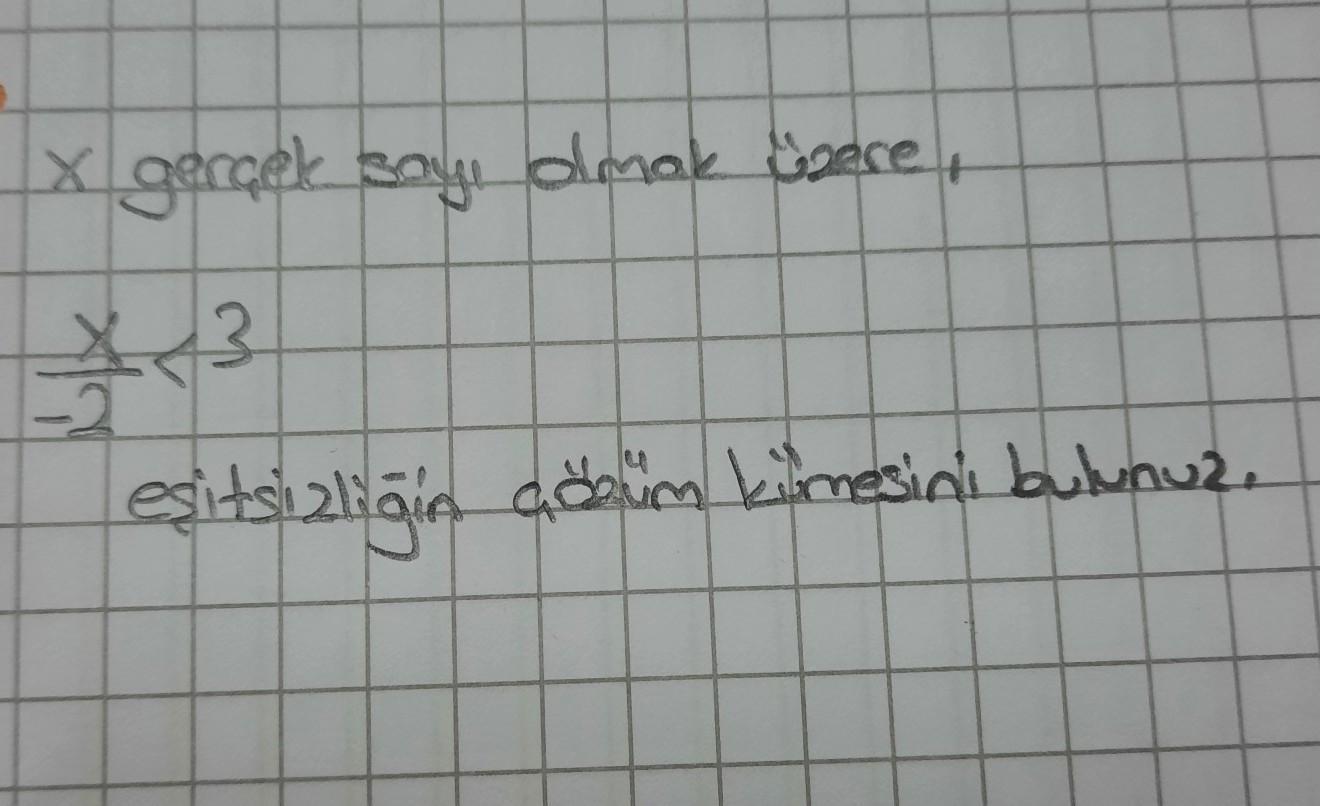 x gerçek sayı olmak üzere,
x/-2 < 3
eşitsizliğin çözüm kümesini bulunuz.